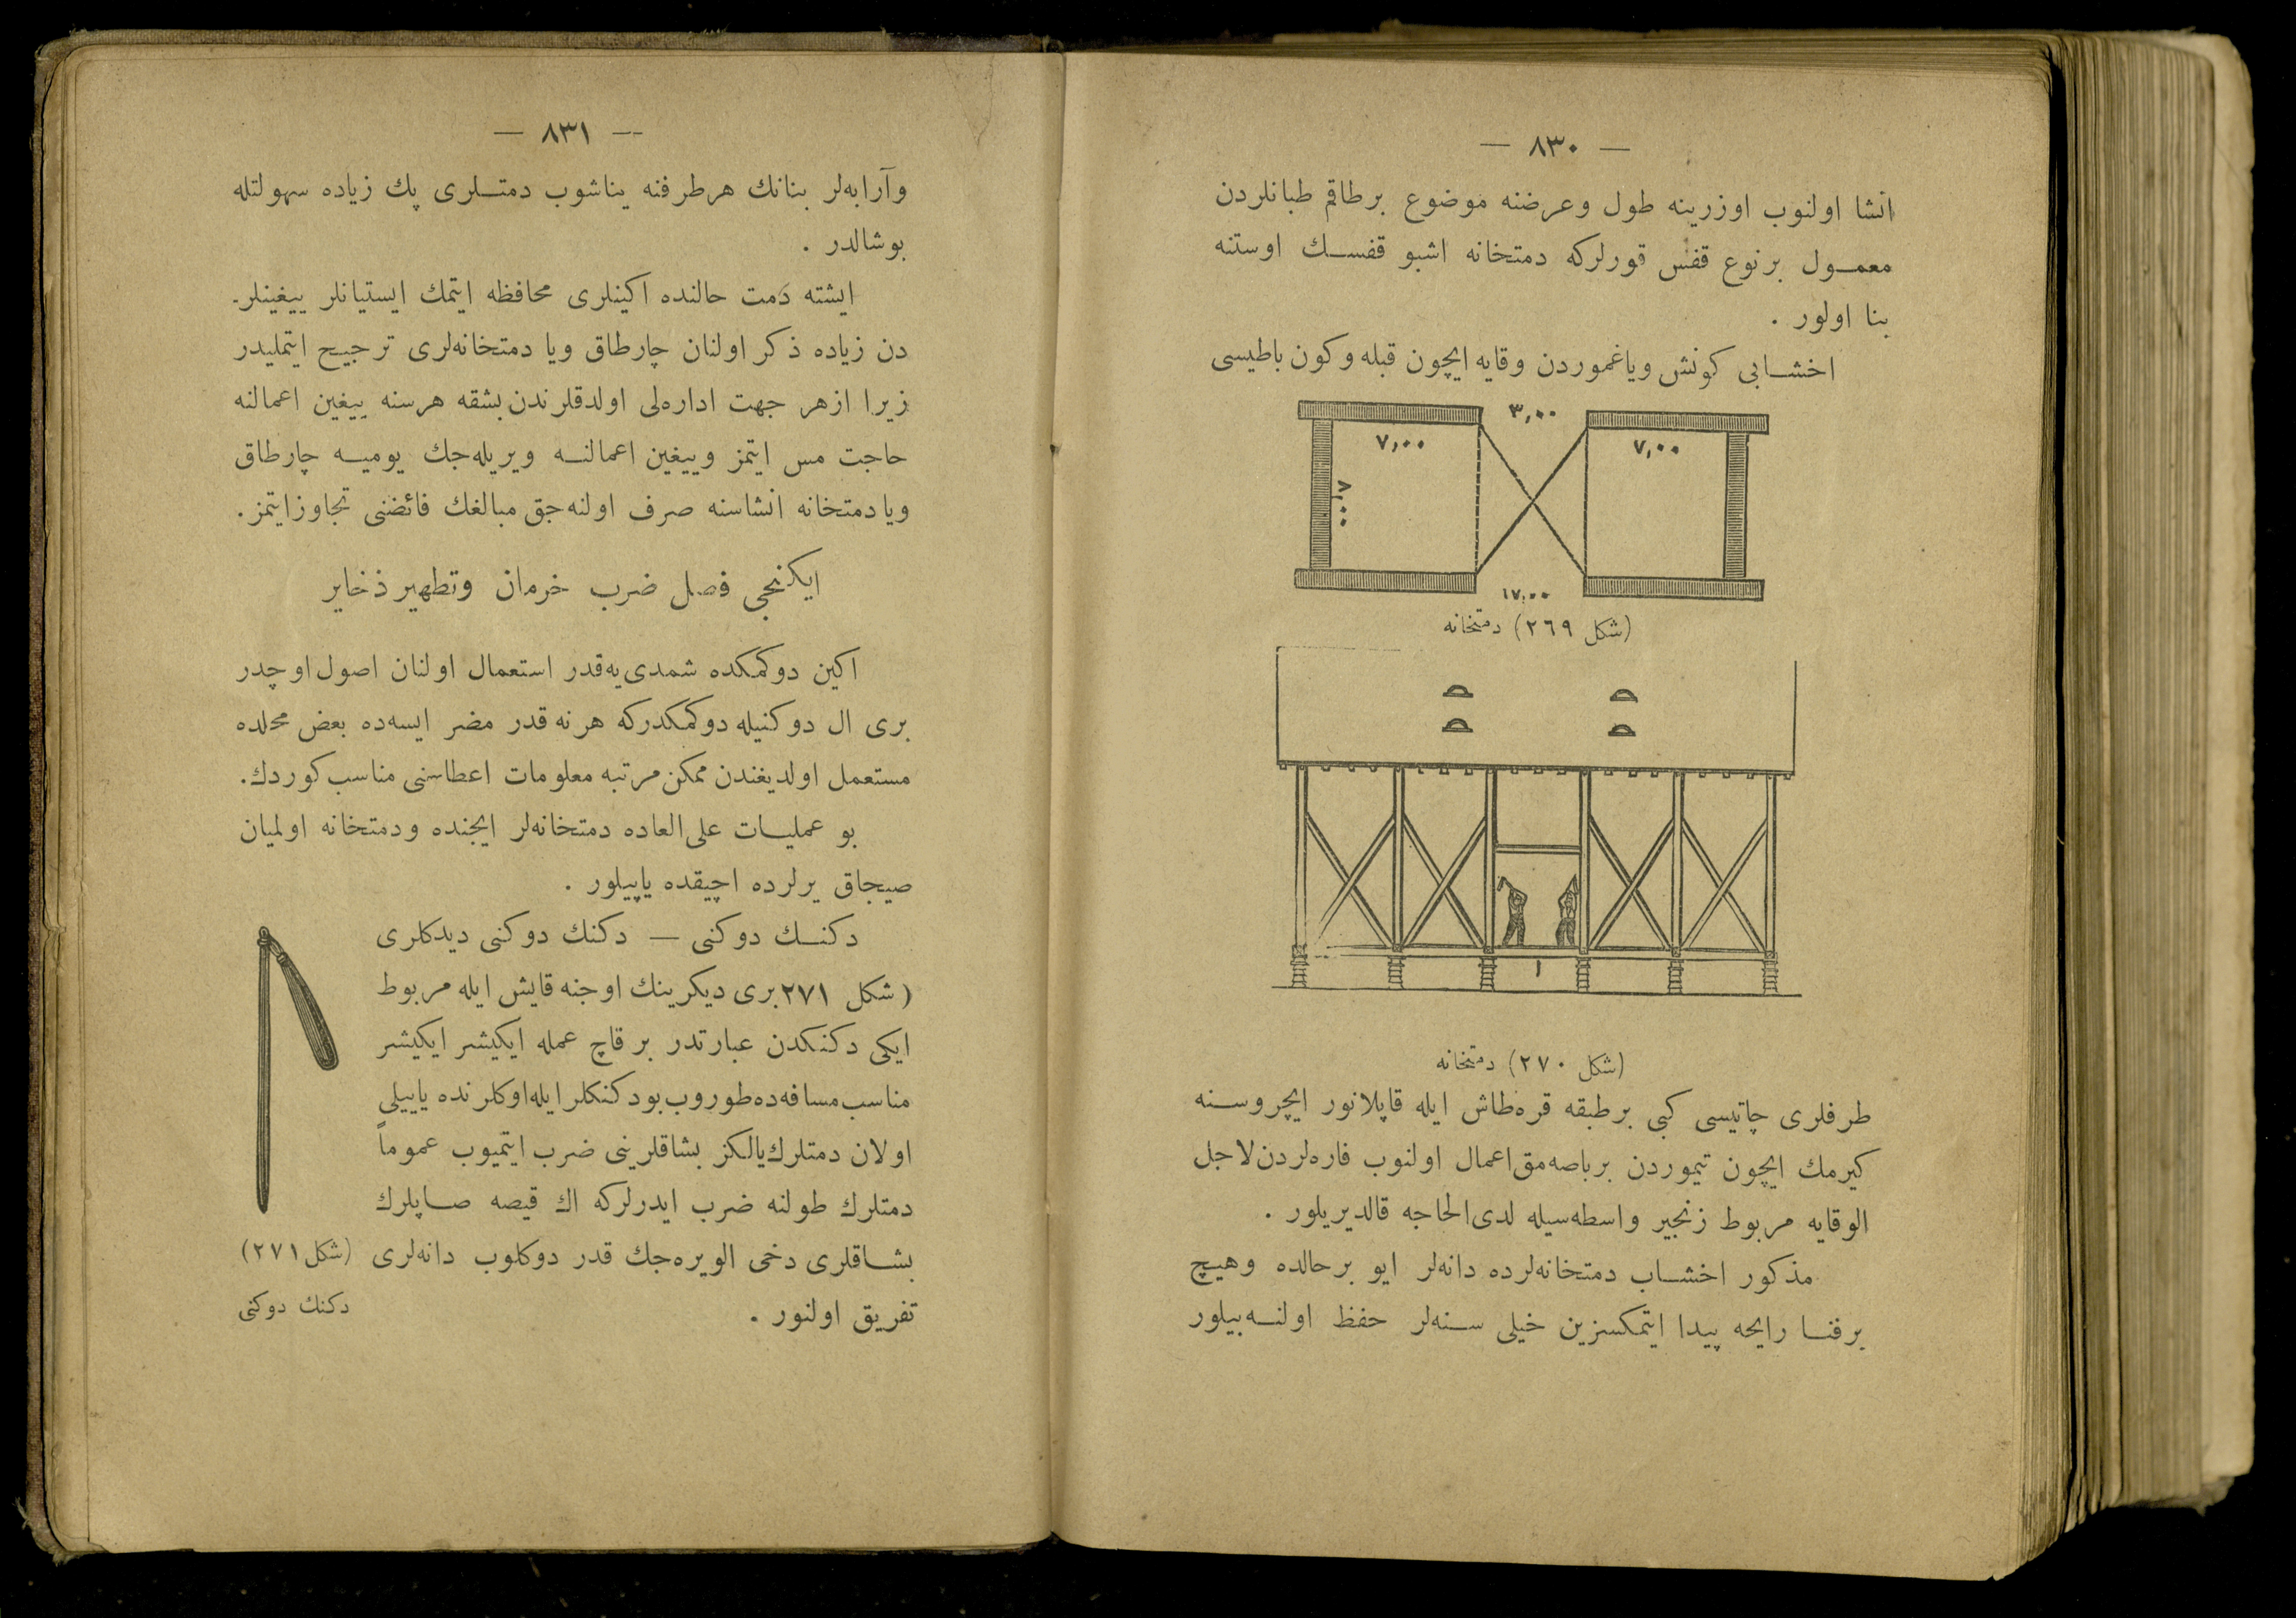 — ٨٣٠ —
انشا اولنوب اوزرینه طول وعرضنه موضوع برطاقم طبانلردن
معمول برنوع قفس قورلرکه دمتخانه اشبو قفسك اوستنه
بنا اولور .
اخشابی کونش ویاغموردن وقایه ایچون قبله وکون باطیسی
٣,٠٠
٧,٠٠
٧,٠٠
٨,٠٠
١٧,٠٠
(شکل ٢٦٩) دمتخانه
١
(شکل ٢٧٠) دمتخانه
طرفلری چاتیسی کبی برطبقه قره‌طاش ایله قاپلانور ایچروسنه
کیرمك ایچون تیموردن برباصه‌مق اعمال اولنوب فاره‌لردن لاجل
الوقایه مربوط زنجیر واسطه‌سیله لدی‌الحاجه قالدیریلور .
مذکور اخشاب دمتخانه‌لرده دانه‌لر ایو برحالده وهیچ
برفنا رایحه پیدا ایتمکسزین خیلی سنه‌لر حفظ اولنه‌بیلور
— ٨٣١ —
وآرابه‌لر بنانك هرطرفنه یناشوب دمتلری پك زیاده سهولتله
بوشالدر .
ایشته دَمت حالنده اکینلری محافظه ایتمك ایستیانلر ییغینلر-
دن زیاده ذکر اولنان چارطاق ویا دمتخانه‌لری ترجیح ایتملیدر
زیرا ازهر جهت اداره‌لی اولدقلرندن بشقه هرسنه ییغین اعمالنه
حاجت مس ایتمز وییغین اعمالنه ویریله‌جك یومیه چارطاق
ویا دمتخانه انشاسنه صرف اولنه‌جق مبالغك فائضنی تجاوز ایتمز.
ایکنجی فصل ضرب خرمان وتطهیر ذخایر
اکین دوکمکده شمدی‌یه‌قدر استعمال اولنان اصول اوچدر
بری ال دوکنیله دوکمکدرکه هرنه قدر مضر ایسه‌ده بعض محلده
مستعمل اولدیغندن ممکن مرتبه معلومات اعطاسنی مناسب کوردك.
بو عملیات علی‌العاده دمتخانه‌لر ایچنده ودمتخانه اولمیان
صیجاق یرلرده اچیقده یاپیلور .
دکنك دوکنی — دکنك دوکنی دیدکلری
(شکل ٢٧١ بری دیکرینك اوجنه قایش ایله مربوط
ایکی دکنکدن عبارتدر برقاچ عمله ایکیشر ایکیشر
مناسب مسافه‌ده طوروب بو دکنکلر ایله اوکلرنده یاییلی
اولان دمتلرك یالکز بشاقلرینی ضرب ایتمیوب عموماً
دمتلرك طولنه ضرب ایدرلرکه اك قیصه صاپلرك
بشاقلری دخی الویره‌جك قدر دوکلوب دانه‌لری
تفریق اولنور .
(شکل ٢٧١)
دکنك دوکنی